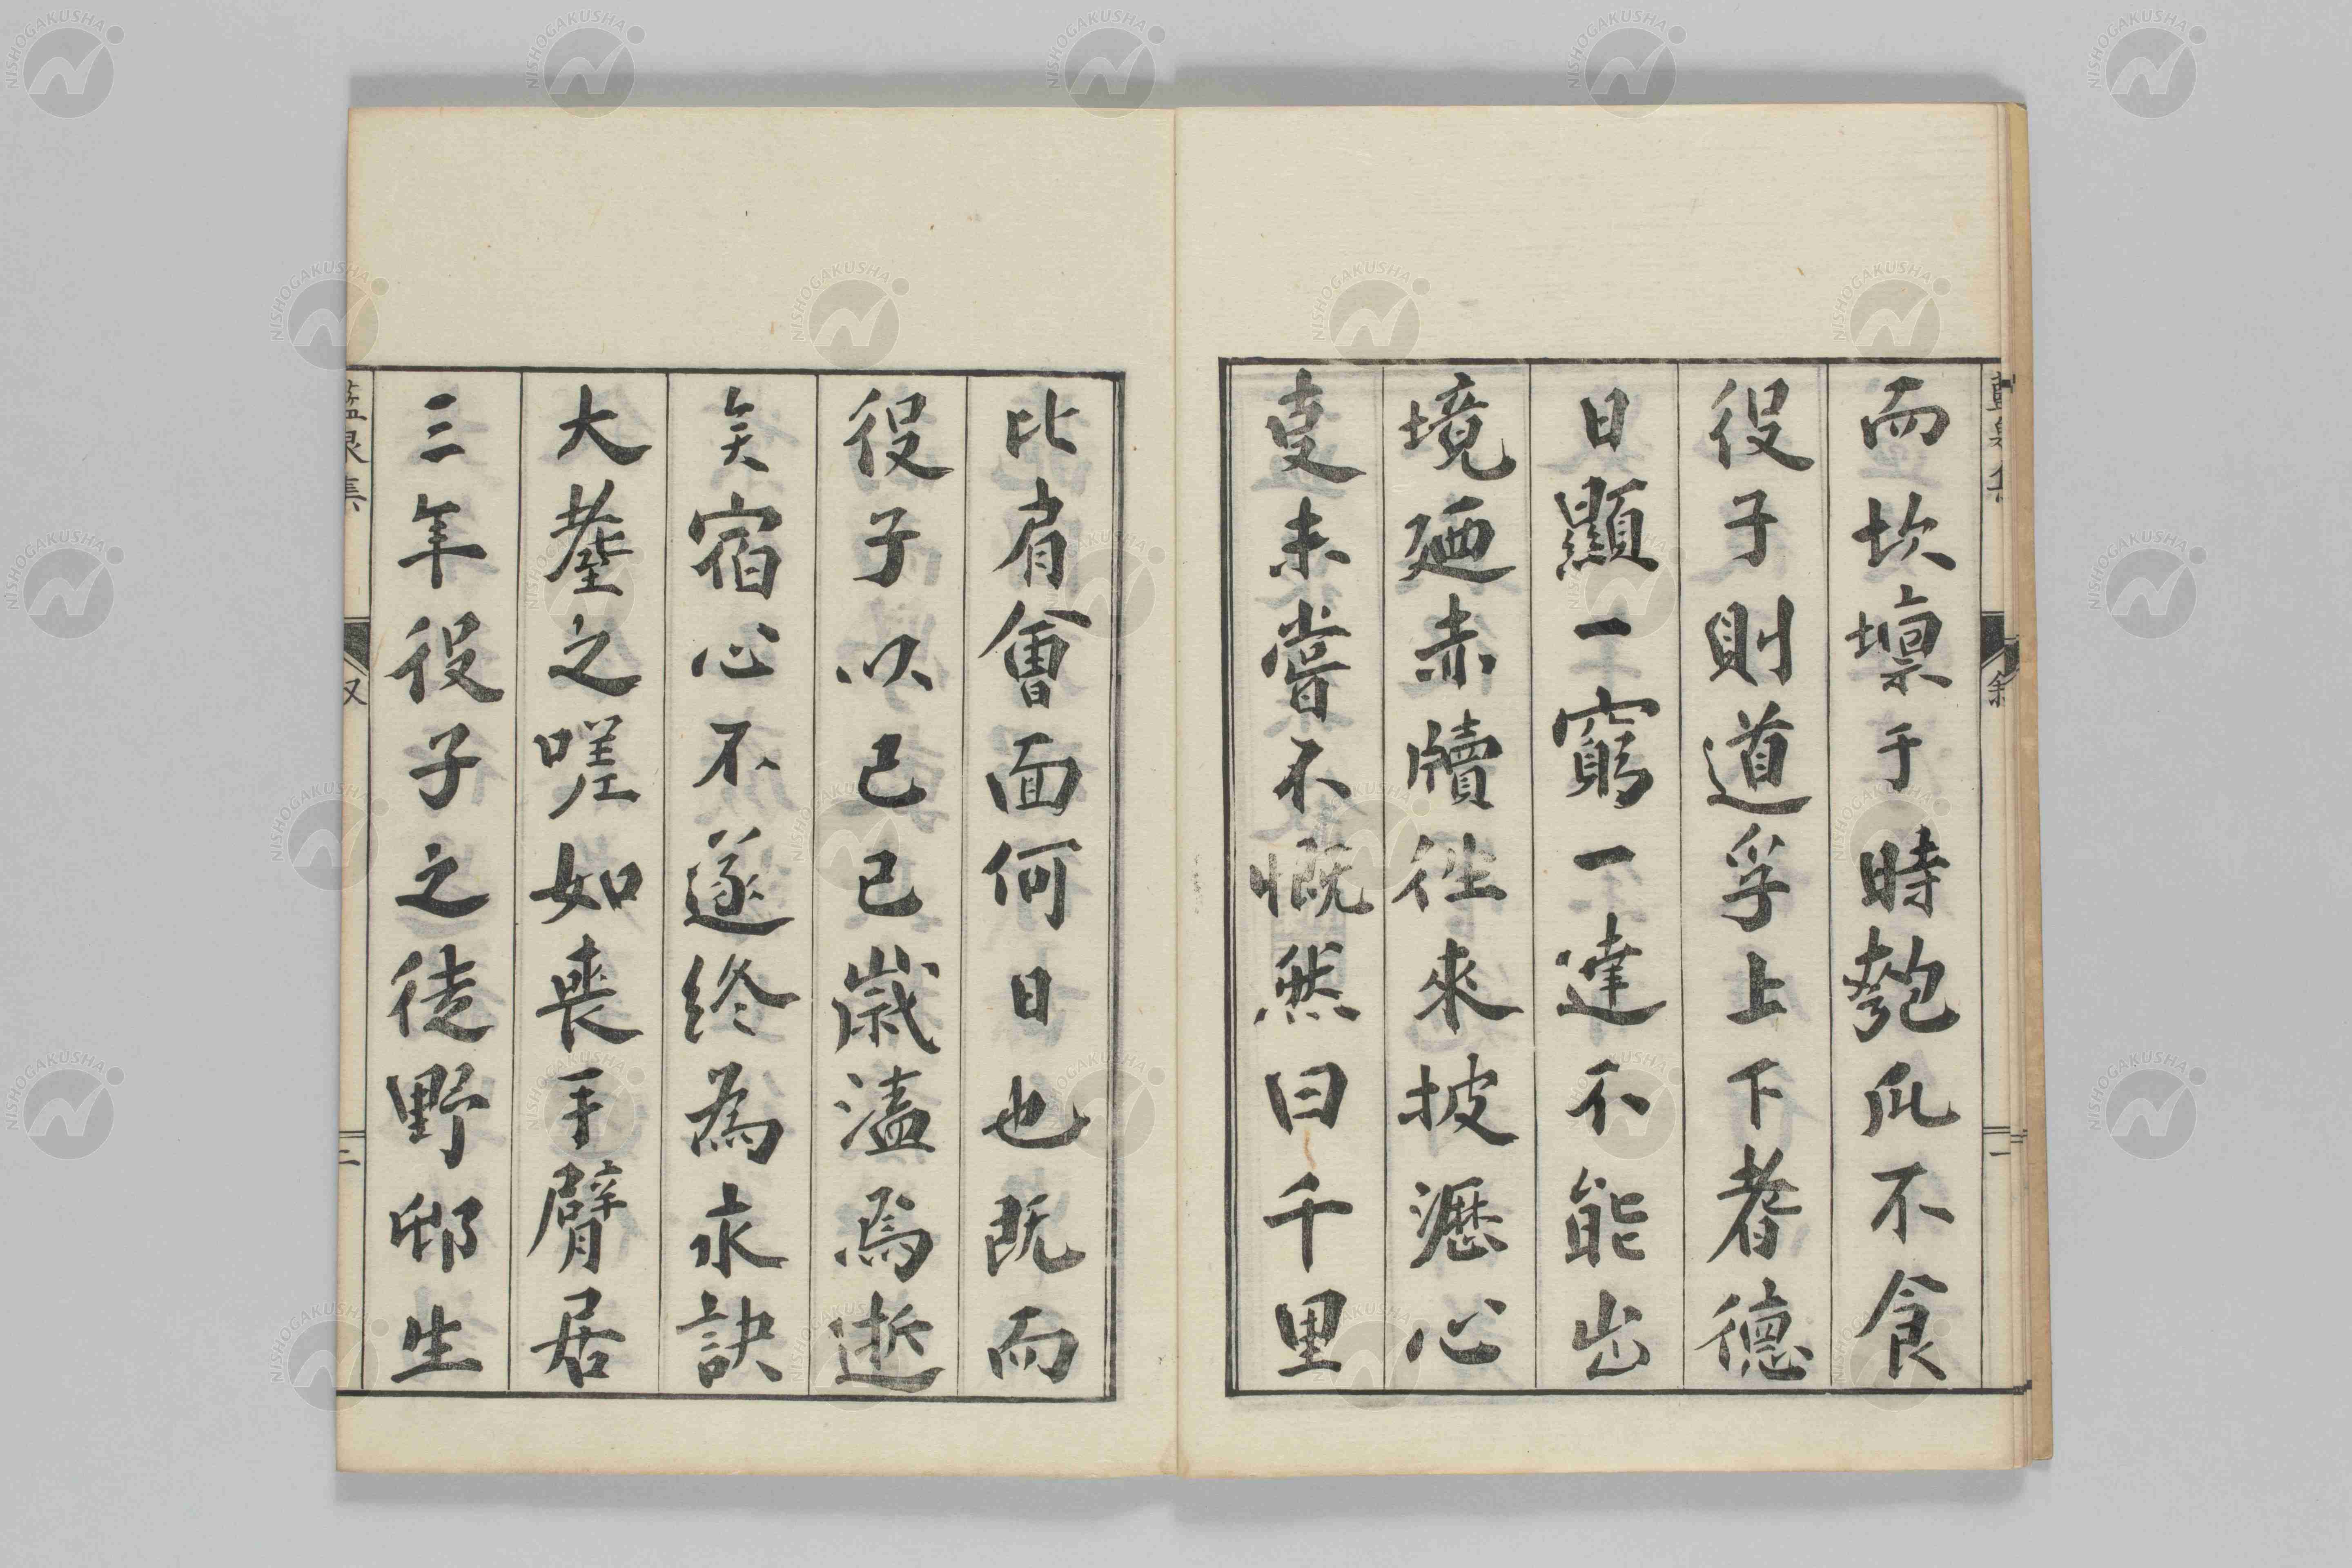 而坎壈于時匏瓜不食
役子則道孚上下耆德
日顯一窮一達不能出
境廼赤牘徃來披瀝心
叓未嘗不慨然曰千里
比肩會面何日也既而
役子以己巳歲溘焉逝
矣宿心不遂終為永訣
大耋之嗟如喪手臂居
三年役子之徒野邨生